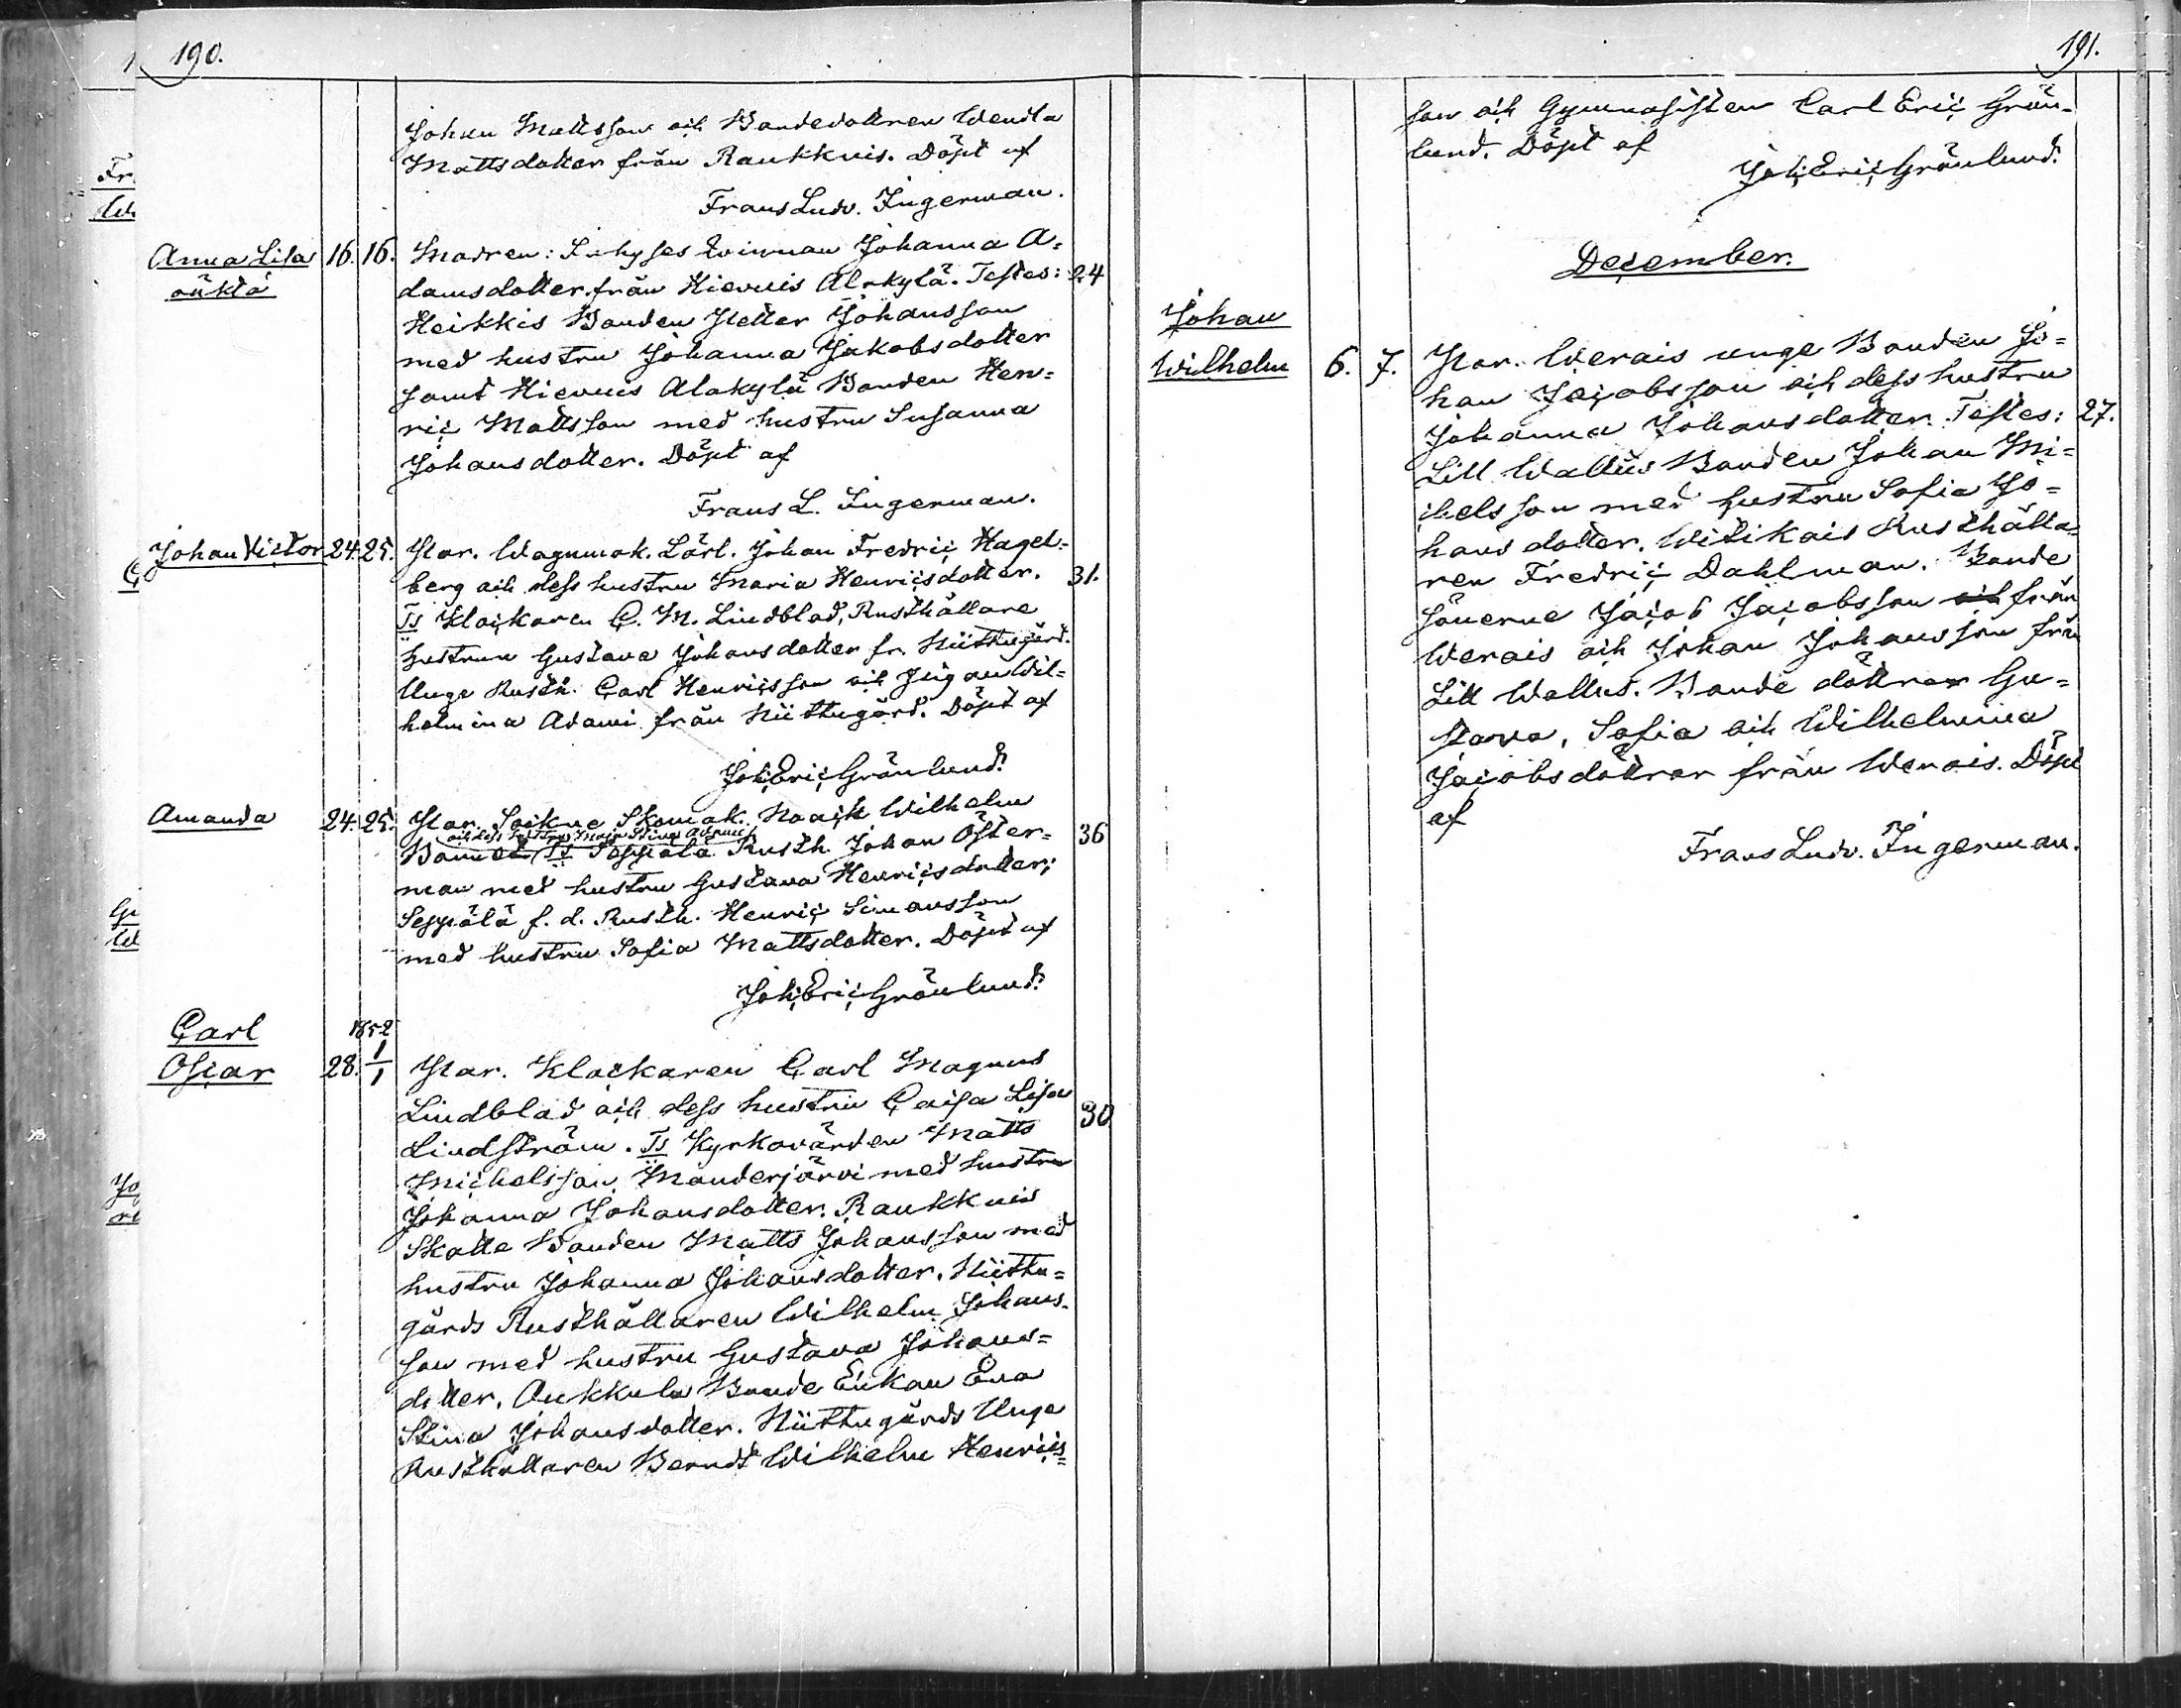 190.
Johan Mattsson och Bondedottren Wendla
Mattsdotter från Raukkuis. Döpt af
Frans Ludv. Ingerman.
Anna Lisa 16. 16. Modren: Inhyses Qvinnan Johanna A=
oäkta damsdotter från Hiennis Alakylä. Testes: 24
Heikkis Bonden Petter Johansson
med hustru Johanna Jakobsdotter
samt Hiennis Alakylä Bonden Hen=
ric Mattsson med hustru Susanna
Johansdotter. Döpt af
Frans L. Ingerman.
Johan Victor 24. 25. Par. Wagnmak. Lärl. Johan Fredric Hagel=
berg och dess hustru Maria Henricsdotter. 31.
Ts Klockaren C. M. Lindblad, Rusthållare
hustrun Gustava Johansdotter fr. Niittugård.
Unge Rusth. Carl Henricsson och Pigan Wil=
helmina Adami från Niittugård. Döpt af
Joh. Eric Grönlund.
Amanda 24. 25. Par. Sockne Skomak. Noach Wilhelm
och dess hustru Maja Stina
Ts Seppälä Rusth. Johan Öster= 36
man med hustru Gustava Henricsdotter;
Seppälä f. d. Rusth. Henric Simonsson
med hustru Sofia Mattsdotter. Döpt af
Joh. Eric Grönlund.
Carl 1852
Oscar 28. 1/1 Par. Klockaren Carl Magnus
Lindblad och dess hustru Caisa Lisa 30
Lindström. Ts Kyrkovärden Matts
Michelsson Manderjärvi med hustru
Johanna Johansdotter. Raukkuis
Skatte Bonden Matts Johansson med
hustru Johanna Johansdotter. Niittu=
gårds Rusthållaren Wilhelm Johans-
son med hustru Gustava Johans=
dotter. Aukkula Bonde Enkan Eva
Stina Johansdotter. Niittugårds Unge
Rusthållaren Berndt Wilhelm Henrics=
191.
son och Gymnasisten Carl Eric Grön-
lund. Döpt af
Joh. Eric Grönlund.
December.
Johan
Wilhelm 6. 7. Par. Werais unge Bonden Jo=
han Jacobsson och dess hustru
Johanna Johansdotter. Testes: 27.
Lill Wallus Bonden Johan Mi=
chelsson med hustru Sofia Jo=
hansdotter. Witikais Rusthålla
ren Fredric Dahlman. Bonde
Sönerne Jacob Jacobsson och från
Werais och Johan Johansson från
Lill Wallus. Bonde döttrar Gu=
stava, Sofia och Wilhelmina
Jacobsdöttrar från Werais. Döpt
af
Frans Ludv. Ingerman.